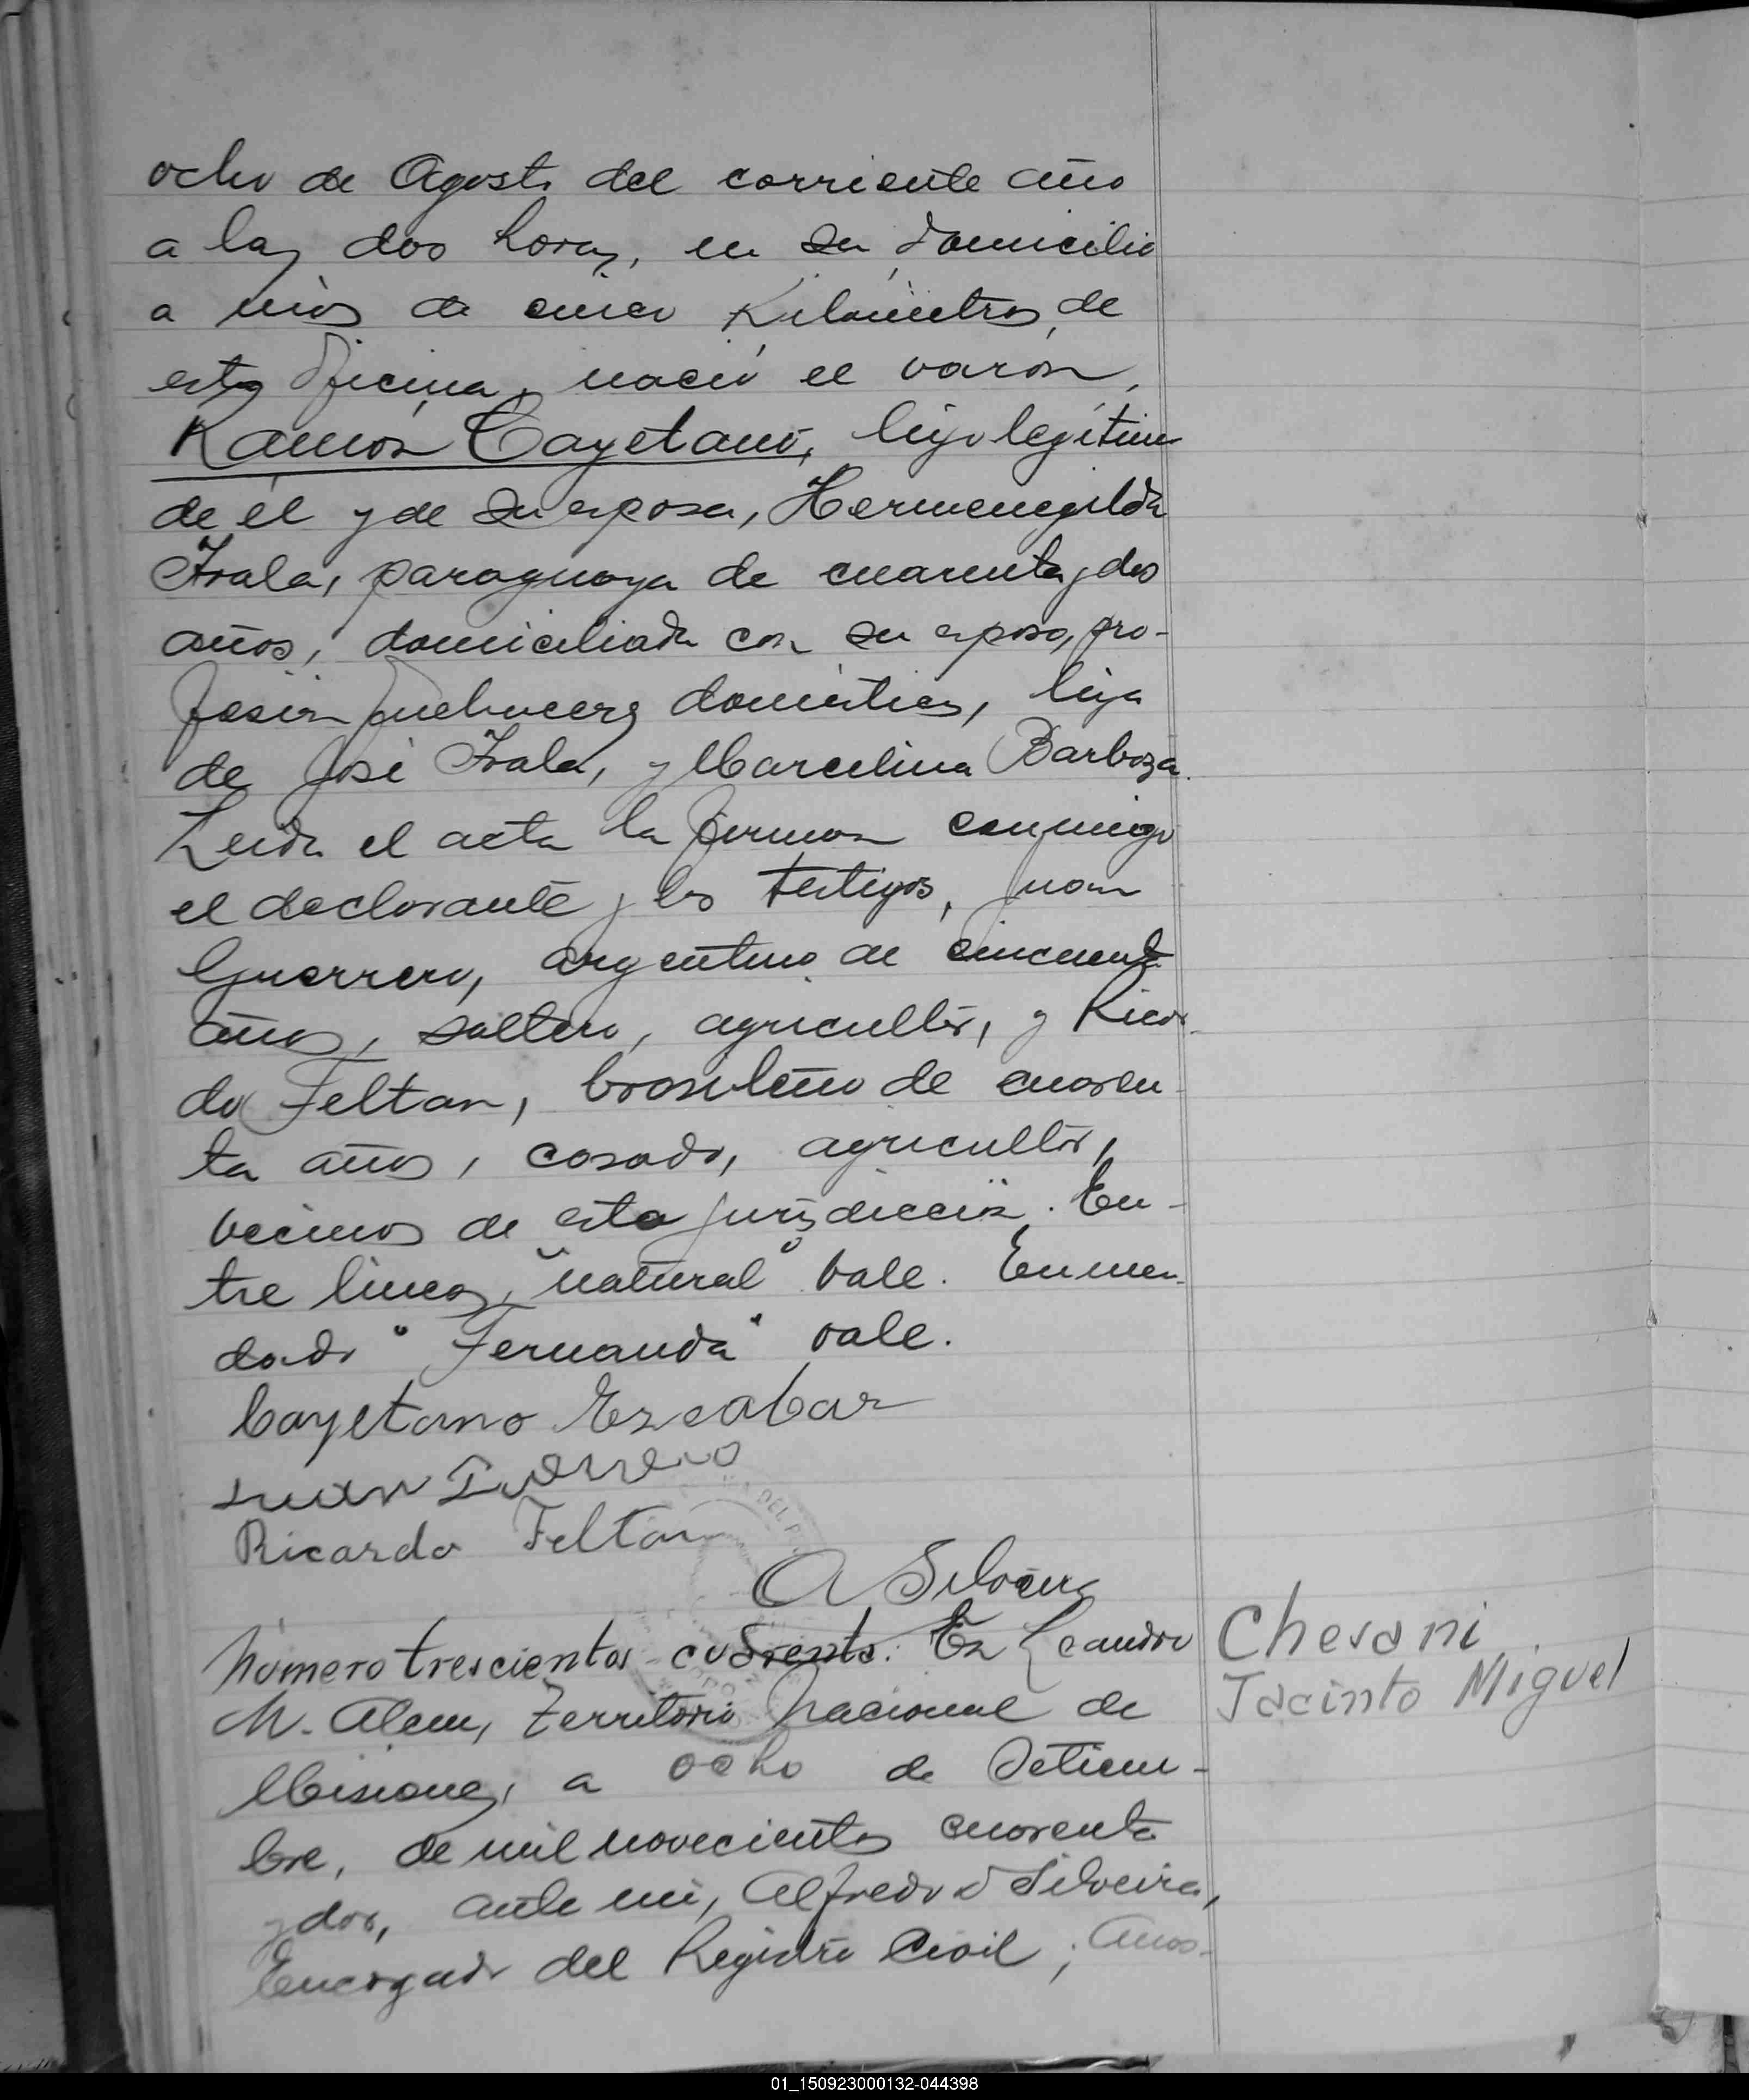 ocho de Agosto del corriente año
a las dos horas, en su domicilio
a unos de cinco Kilómetros de
esta Oficina, nació el varón,
Ramón Cayetano, hijo legítimo
de él y de su esposa, Hermenegilda
Irala, paraguaya de cuarenta y dos
años, domiciliada con su esposo, pro-
fesión quehaceres domésticos, hija
de José Irala, y Marcelina Barboza.
Leida el acta la firman conmigo
el declarante y los testigos, Juan
Guerrero, argentino de cincuenta
años, soltero, agricultor, y Ricar-
do Feltan, brasileño de cuaren-
ta años, casado, agricultor,
vecinos de esta jurisdicción. En-
tre lineas, "natural" vale. Enmen-
dado "Fernanda" vale.
Cayetano Escabar
Juan Guerrero
Ricardo Feltan
A Silveira
Número trescientos cuarenta. En Leandro
N. Alem, Territorio Nacional de
Misiones, a ocho de Setiem-
bre, de mil novecientos cuarenta
y dos, ante mi, Alfredo Silveira,
Encargado del Registro Civil,
Chesani
Jacinto Miguel
01_150923000132-044398